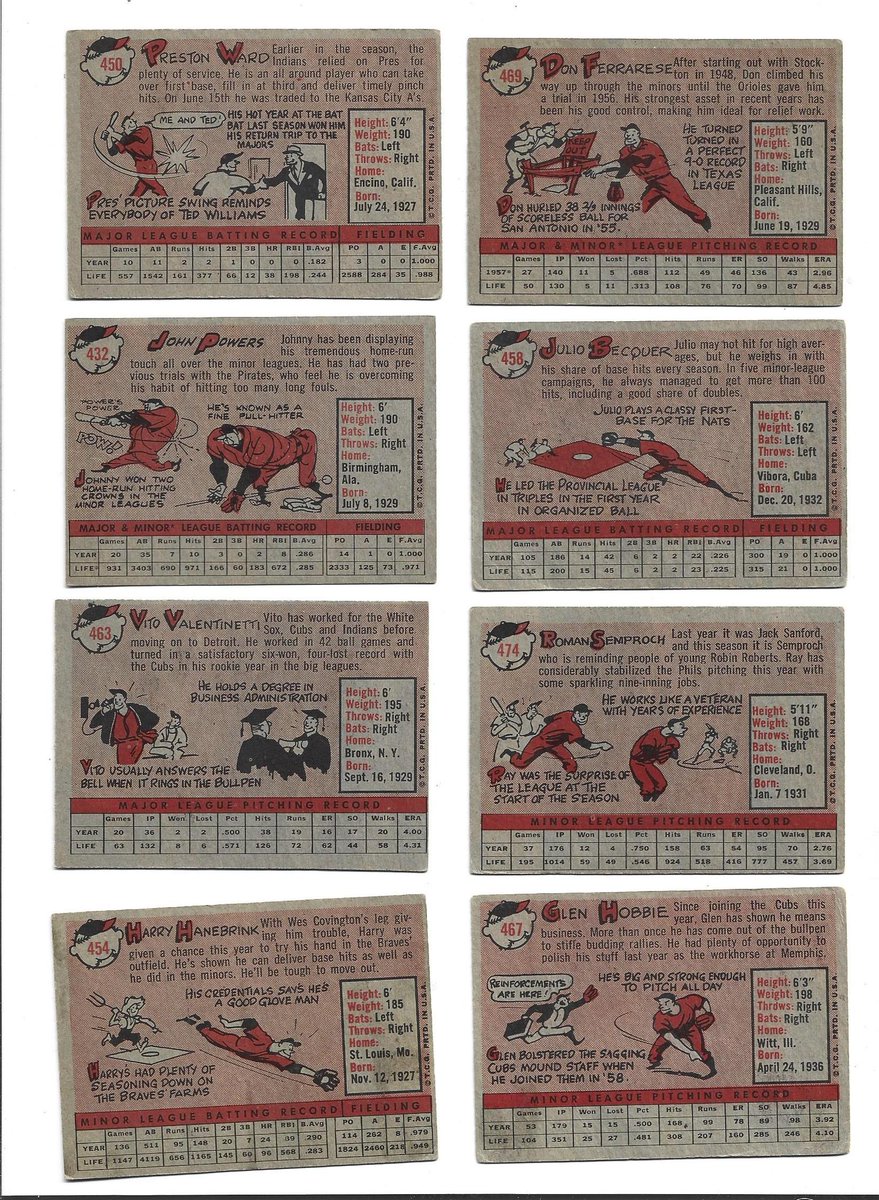 450
PRESTON WARD
Earlier in the season, the
Indians relied on Pres for
plenty of service. He is an all around player who can take
over first base, fill in at third and deliver timely pinch
hits. On June 15th he was traded to the Kansas City A's
ME AND TED!
HIS HOT YEAR AT THE BAT
BAT LAST SEASON WON HIM
HIS RETURN TRIP TO THE
MAJORS
PRES' PICTURE SWING REMINDS
EVERYBODY OF TED WILLIAMS
Height: 6'4"
Weight: 190
Bats: Left
Throws: Right
Home:
Encino, Calif.
Born:
July 24, 1927
© T.C.G. PRTD. IN U.S.A.
MAJOR LEAGUE BATTING RECORD FIELDING
Games AB Runs Hits 2B 3B HR RBI B.Avg PO A E F.Avg
YEAR 10 11 2 2 1 0 0 0 .182 3 0 0 1.000
LIFE 557 1542 161 377 66 12 38 198 .244 2588 284 35 .988
469
DON FERRARESE
After starting out with Stock-
ton in 1948, Don climbed his
way up through the minors until the Orioles gave him
a trial in 1956. His strongest asset in recent years has
been his good control, making him ideal for relief work.
KEEP OUT
HE TURNED
TURNED IN
A PERFECT
9-0 RECORD
IN TEXAS
LEAGUE
DON HURLED 38 2/3 INNINGS
OF SCORELESS BALL FOR
SAN ANTONIO IN '55.
Height: 5'9"
Weight: 160
Throws: Left
Bats: Right
Home:
Pleasant Hills,
Calif.
Born:
June 19, 1929
© T.C.G. PRTD. IN U.S.A.
MAJOR & MINOR* LEAGUE PITCHING RECORD
Games IP Won Lost Pct Hits Runs ER SO Walks ERA
1957* 27 140 11 5 .688 112 49 46 136 43 2.96
LIFE 50 130 5 11 .313 108 76 70 99 87 4.85
432
JOHN POWERS
Johnny has been displaying
his tremendous home-run
touch all over the minor leagues. He has had two pre-
vious trials with the Pirates, who feel he is overcoming
his habit of hitting too many long fouls.
POWER'S
POWER
POW!
HE'S KNOWN AS A
FINE PULL-HITTER
JOHNNY WON TWO
HOME-RUN HITTING
CROWNS IN THE
MINOR LEAGUES
Height: 6'
Weight: 190
Bats: Left
Throws: Right
Home:
Birmingham,
Ala.
Born:
July 8, 1929
© T.C.G. PRTD. IN U.S.A.
MAJOR & MINOR* LEAGUE BATTING RECORD FIELDING
Games AB Runs Hits 2B 3B HR RBI B.Avg PO A E F.Avg
YEAR 20 35 7 10 3 0 2 8 .286 14 1 0 1.000
LIFE* 931 3403 690 971 166 60 183 672 .285 2333 125 73 .971
458
JULIO BECQUER
Julio may not hit for high aver-
ages, but he weighs in with
his share of base hits every season. In five minor-league
campaigns, he always managed to get more than 100
hits, including a good share of doubles.
JULIO PLAYS A CLASSY FIRST-
BASE FOR THE NATS
HE LED THE PROVINCIAL LEAGUE
IN TRIPLES IN THE FIRST YEAR
IN ORGANIZED BALL
Height: 6'
Weight: 162
Bats: Left
Throws: Left
Home:
Vibora, Cuba
Born:
Dec. 20, 1932
© T.C.G. PRTD. IN U.S.A.
MAJOR LEAGUE BATTING RECORD FIELDING
Games AB Runs Hits 2B 3B HR RBI B.Avg PO A E F.Avg
YEAR 105 186 14 42 6 2 2 22 .226 300 19 0 1.000
LIFE 115 200 15 45 6 2 2 23 .225 315 21 0 1.000
463
VITO VALENTINETTI
Vito has worked for the White
Sox, Cubs and Indians before
moving on to Detroit. He worked in 42 ball games and
turned in a satisfactory six-won, four-lost record with
the Cubs in his rookie year in the big leagues.
HE HOLDS A DEGREE IN
BUSINESS ADMINISTRATION
VITO USUALLY ANSWERS THE
BELL WHEN IT RINGS IN THE BULLPEN
Height: 6'
Weight: 195
Throws: Right
Bats: Right
Home:
Bronx, N. Y.
Born:
Sept. 16, 1929
© T.C.G. PRTD. IN U.S.A.
MAJOR LEAGUE PITCHING RECORD
Games IP Won Lost Pct Hits Runs ER SO Walks ERA
YEAR 20 36 2 2 .500 38 19 16 17 20 4.00
LIFE 63 132 8 6 .571 126 72 62 44 58 4.31
474
ROMAN SEMPROCH
Last year it was Jack Sanford,
and this season it is Semproch
who is reminding people of young Robin Roberts. Ray has
considerably stabilized the Phils pitching this year with
some sparkling nine-inning jobs.
HE WORKS LIKE A VETERAN
WITH YEARS OF EXPERIENCE
RAY WAS THE SURPRISE OF
THE LEAGUE AT THE
START OF THE SEASON
Height: 5'11"
Weight: 168
Throws: Right
Bats: Right
Home:
Cleveland, O.
Born:
Jan. 7 1931
© T.C.G. PRTD. IN U.S.A.
MINOR LEAGUE PITCHING RECORD
Games IP Won Lost Pct Hits Runs ER SO Walks ERA
YEAR 37 176 12 4 .750 158 63 54 95 70 2.76
LIFE 195 1014 59 49 .546 924 518 416 777 457 3.69
454
HARRY HANEBRINK
With Wes Covington's leg giv-
ing him trouble, Harry was
given a chance this year to try his hand in the Braves'
outfield. He's shown he can deliver base hits as well as
he did in the minors. He'll be tough to move out.
HIS CREDENTIALS SAYS HE'S
A GOOD GLOVE MAN
HARRY'S HAD PLENTY OF
SEASONING DOWN ON
THE BRAVES' FARMS
Height: 6'
Weight: 185
Bats: Left
Throws: Right
Home:
St. Louis, Mo.
Born:
Nov. 12, 1927
© T.C.G. PRTD. IN U.S.A.
MINOR LEAGUE BATTING RECORD FIELDING
Games AB Runs Hits 2B 3B HR RBI B.Avg PO A E F.Avg
YEAR 136 511 95 148 20 7 24 39 .290 114 262 8 .979
LIFE 1147 4119 656 1165 145 60 96 568 .283 1824 2460 218 .949
467
GLEN HOBBIE
Since joining the Cubs this
year, Glen has shown he means
business. More than once he has come out of the bullpen
to stiffe budding rallies. He had plenty of opportunity to
polish his stuff last year as the workhorse at Memphis.
REINFORCEMENTS
ARE HERE!
HE'S BIG AND STRONG ENOUGH
TO PITCH ALL DAY
GLEN BOLSTERED THE SAGGING
CUBS MOUND STAFF WHEN
HE JOINED THEM IN '58.
Height: 6'3"
Weight: 198
Throws: Right
Bats: Right
Home:
Witt, Ill.
Born:
April 24, 1936
© T.C.G. PRTD. IN U.S.A.
MINOR LEAGUE PITCHING RECORD
Games IP Won Lost Pct Hits Runs ER SO Walks ERA
YEAR 53 179 15 15 .500 168 99 78 89 .98 3.92
LIFE 104 351 25 27 .481 308 207 160 285 246 4.10